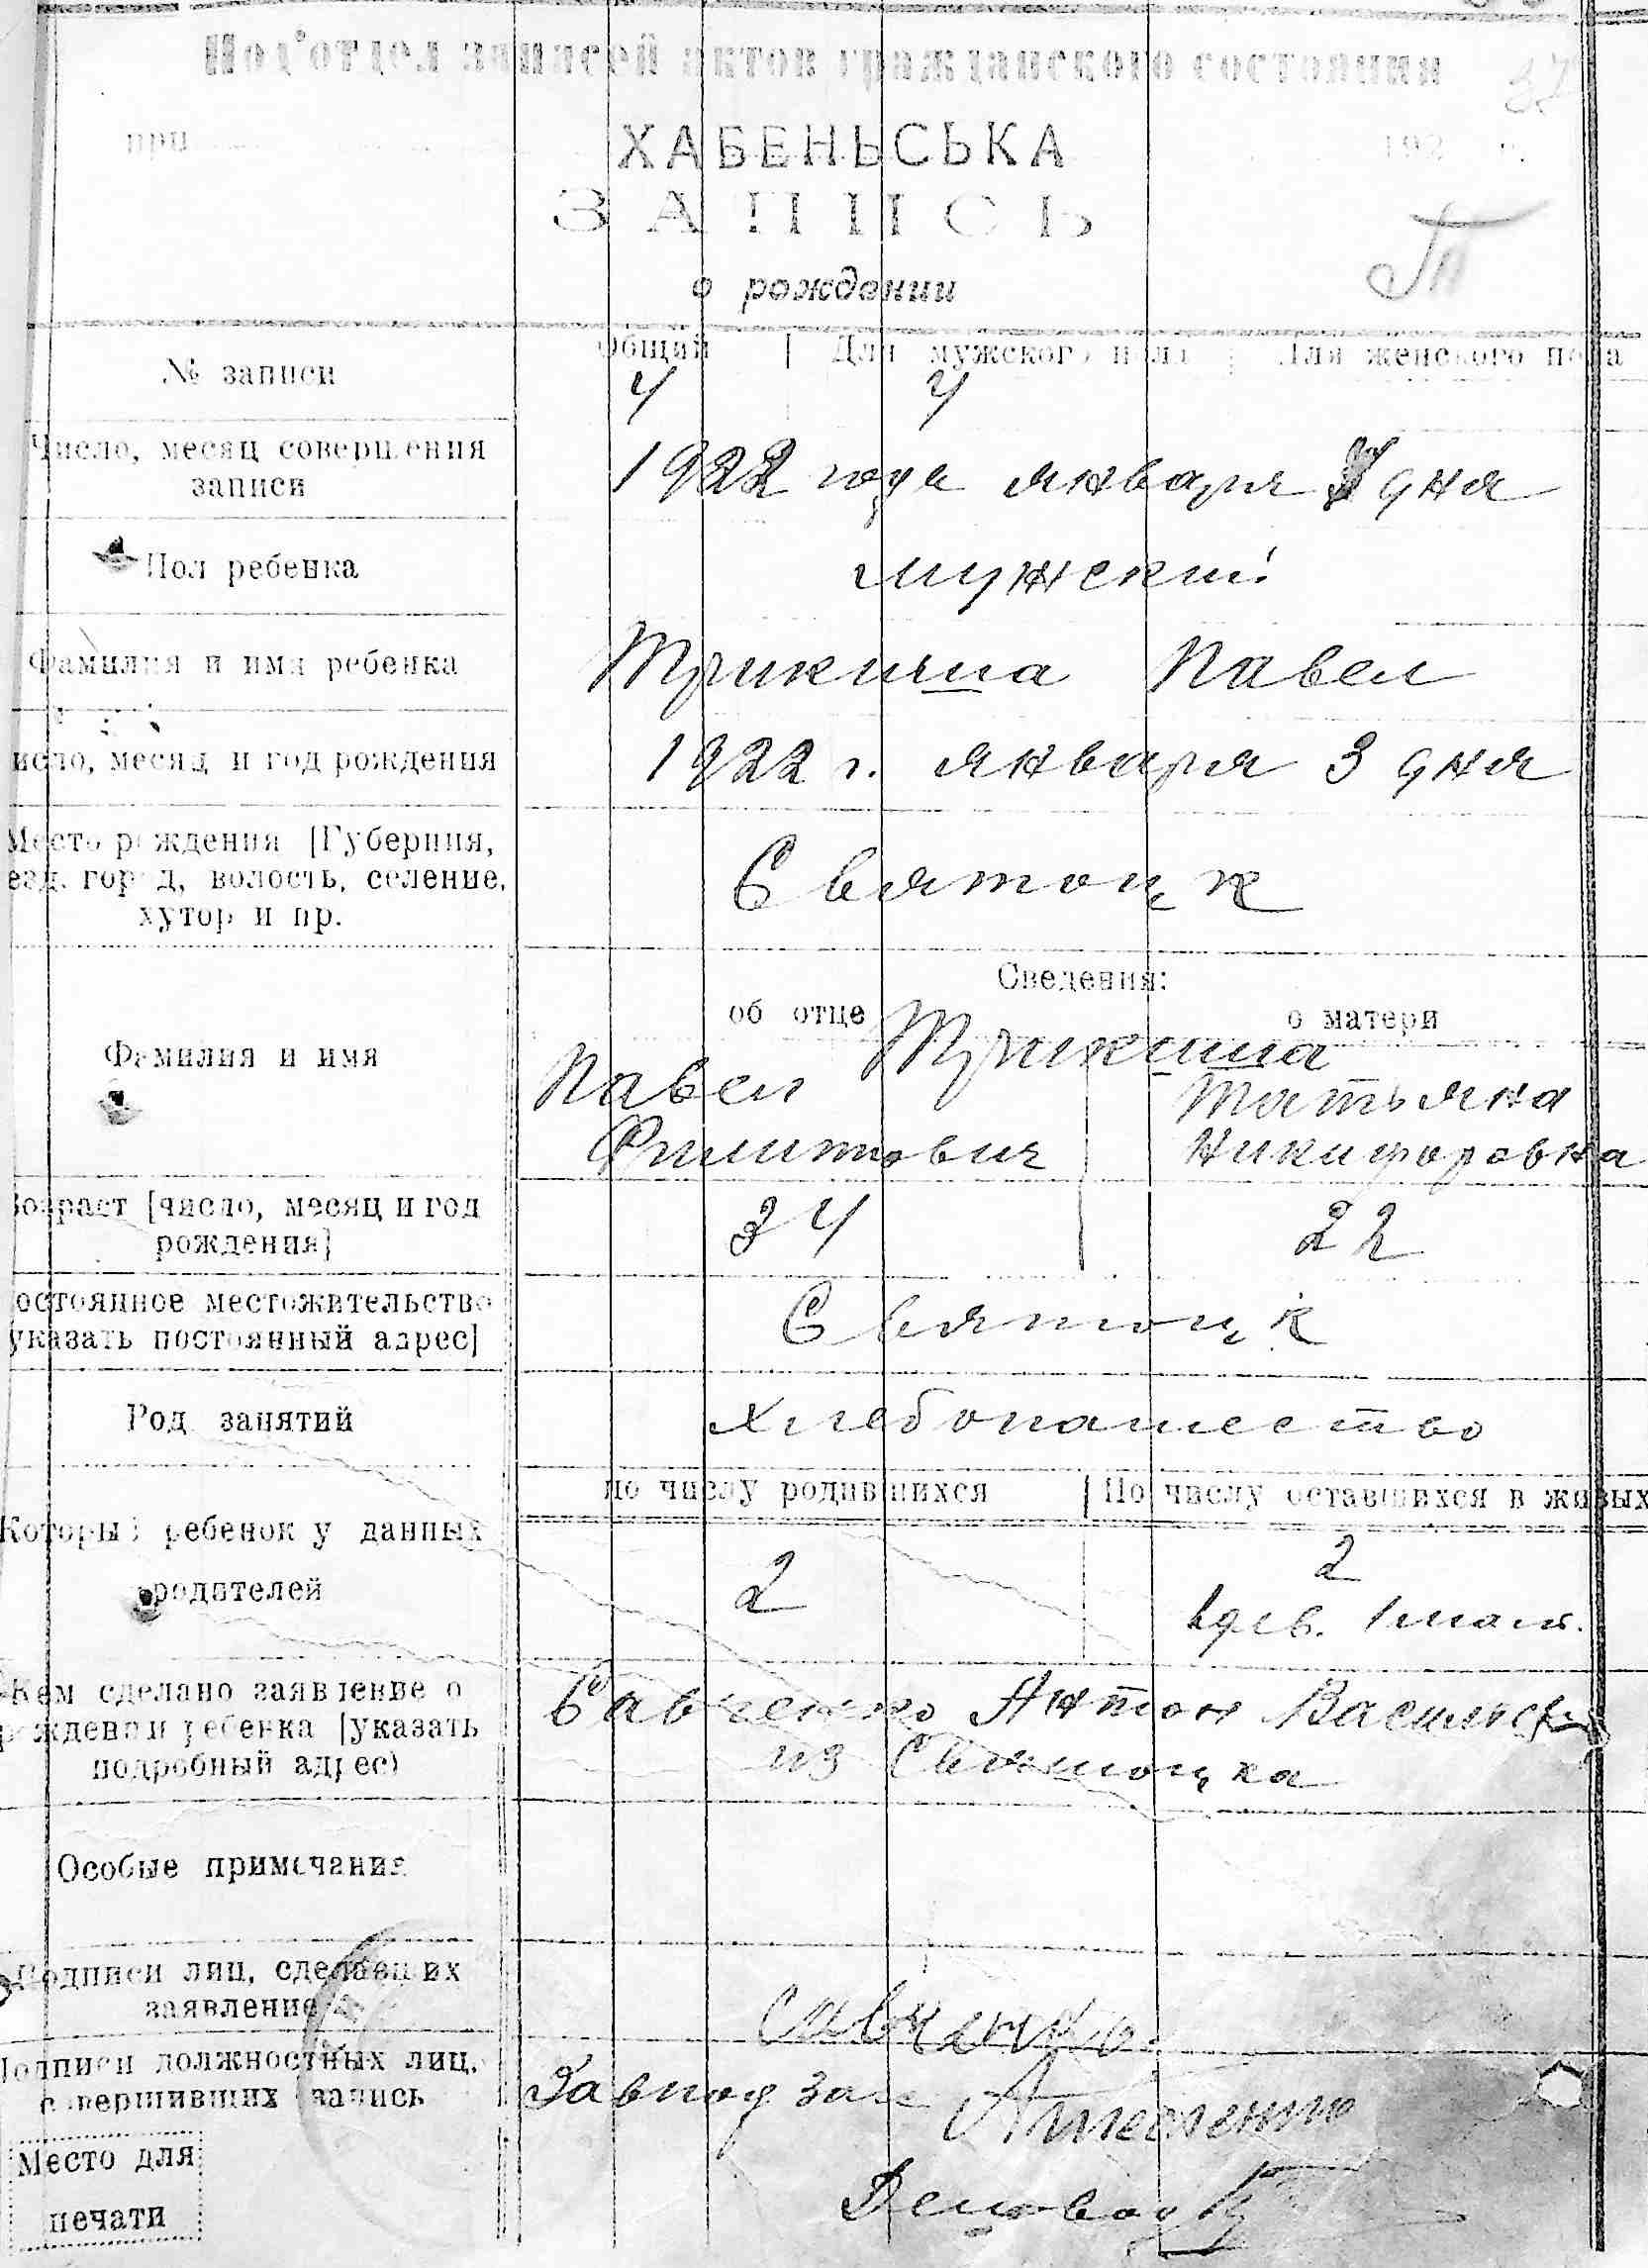 Под'отдел записей актов гражданского состояния
37
при 192 г.
ХАБЕНЬСЬКА
ЗАПИСЬ
о рождении
Общий | Для мужского пола | Для женского пола
№ записи 4 4
Число, месяц совершения 1922 года января 7 дня
записи
Пол ребенка мужский
Фамилия и имя ребенка Трикиша Павел
Число, месяц и год рождения 1922 г. января 3 дня
Место рождения [Губерния,
уезд, город, волость, селение, Святоцк
хутор и пр.
Сведения:
об отце о матери
Трикиша
Фамилия и имя Павел Татьяна
Филиппович Никифоровна
Возраст [число, месяц и год 34 22
рождения]
Постоянное местожительство Святоцк
[указать постоянный адрес]
Род занятий хлебопашество
по числу родившихся | По числу оставшихся в живых
Который ребенок у данных 2 2
родителей 1 дев. 1 мал.
Кем сделано заявление о Савченко Антон Васильев
рождении ребенка [указать из Святоцка
подробный адрес)
Особые примечания
Подписи лиц, сделавших
заявление Савченко
Подписи должностных лиц, Завпод зап
совершивших запись
Место для
печати Деловод